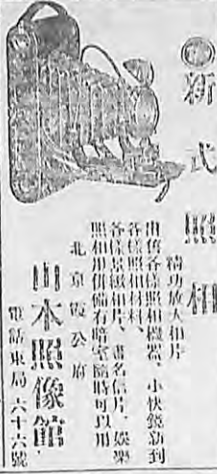 新式照相
精巧放大相片
出售各樣照相機器、小快鏡新到
各樣照相材料、
各樣景緻相片、書名信片、娛樂
照相用併備有暗室隨時可以用
北京霞公府
山本照像館
電話東局六十六號